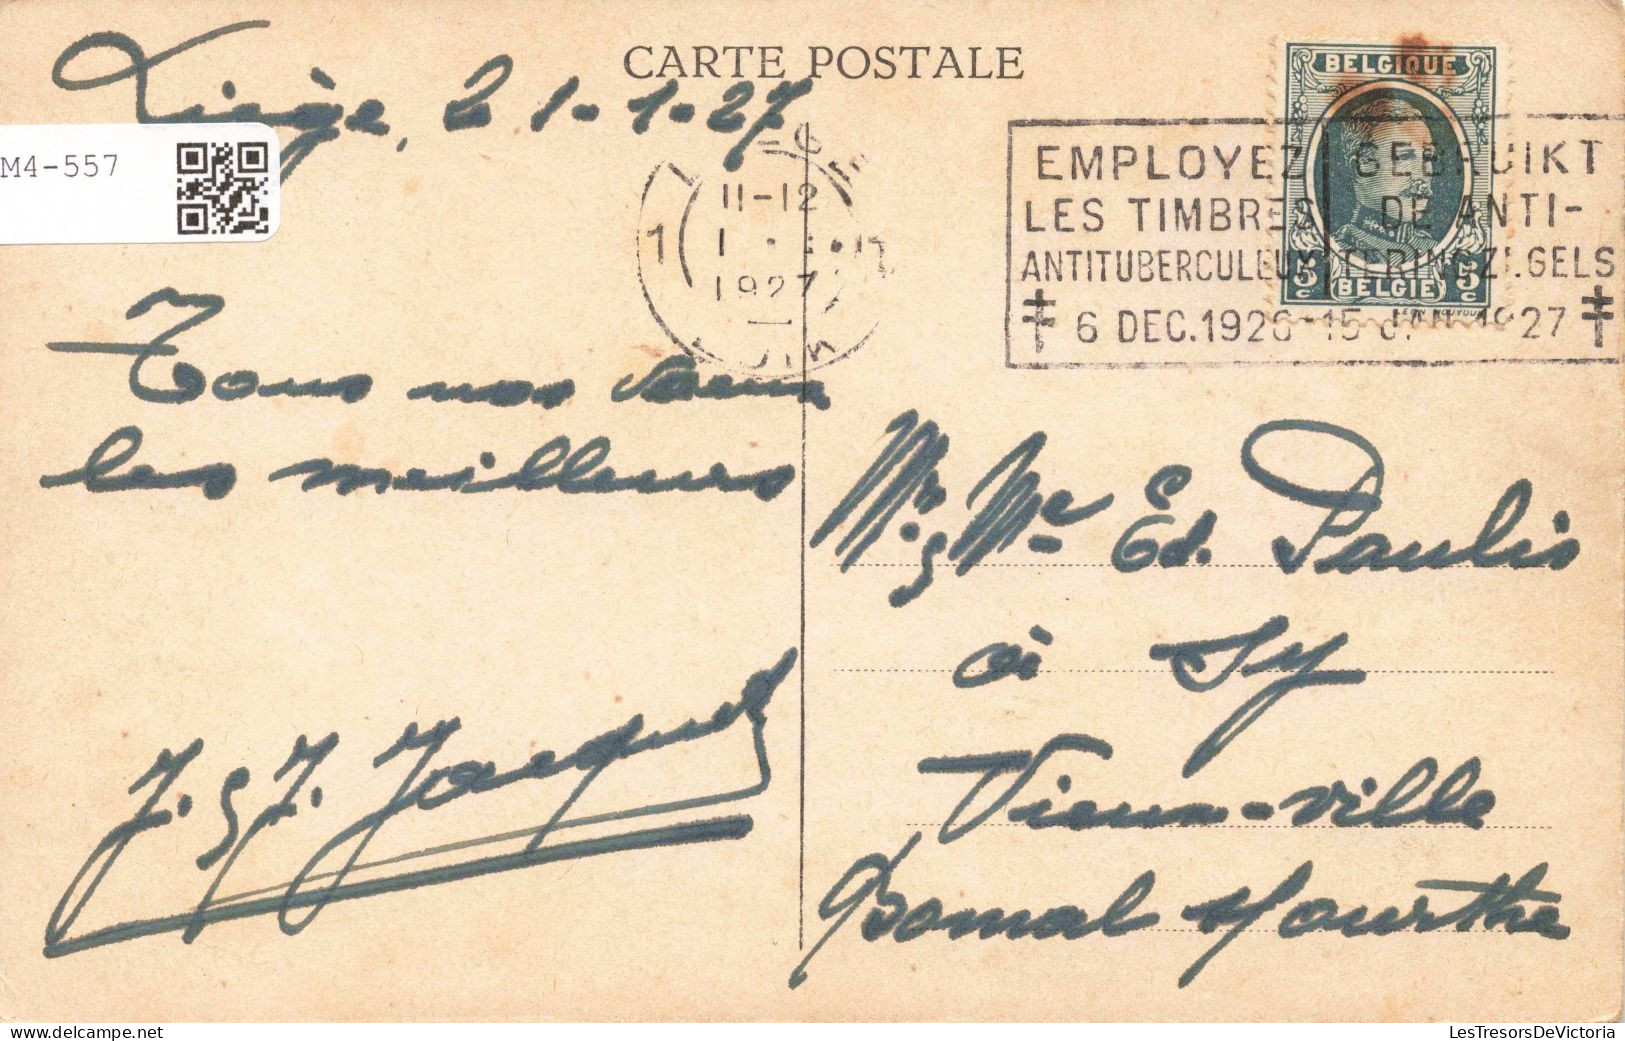 CARTE POSTALE
Liège, 21-1-27
M4-557
11-12
1927
BELGIQUE
EMPLOYEZ
LES TIMBRES
ANTITUBERCULEUX
GEBRUIKT
DE ANTI-
TERINGZEGELS
6 DEC. 1926-15 JAN. 1927
5c 5c
BELGIË
Tous nos vœux
les meilleurs
J. & J. Jacquet
Mr. & Me Ed. Paulis
à Sy
Vieux-ville
Bomal s/ourthe
LesTresorsDeVictoria